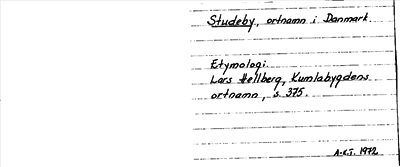 Studeby, ortnamn i Danmark.
Etymologi.
Lars Hellberg, Kumlabygdens
ortnamn, s. 375.
A-K.J. 1972